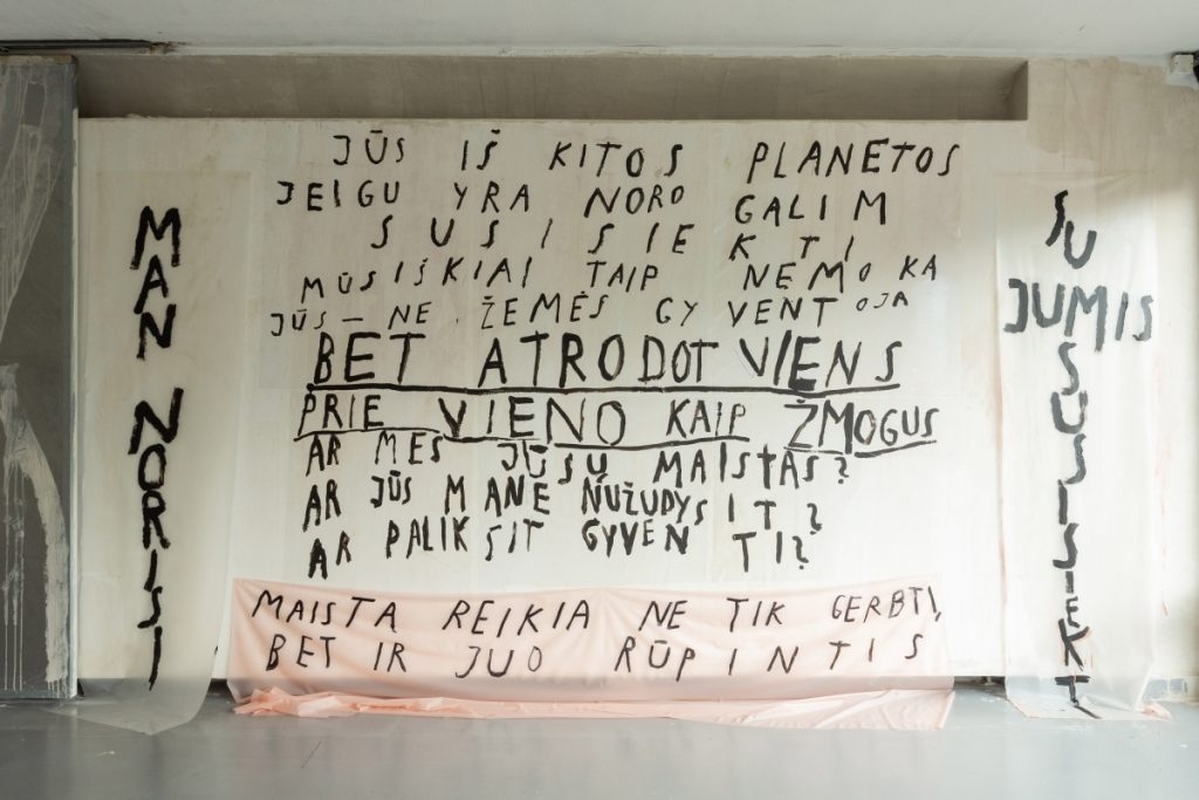 MAN NORISI
JŪS IŠ KITOS PLANETOS
JEIGU YRA NORO GALIM
SUSISIEKTI
MŪSIŠKIAI TAIP NEMOKA
JŪS — NE ŽEMĖS GYVENTOJA
BET ATRODOT VIENS
PRIE VIENO KAIP ŽMOGUS
AR MES JŪSŲ MAISTAS?
AR JŪS MANE NUŽUDYSIT?
AR PALIKSIT GYVENTI?
MAISTA REIKIA NE TIK GERBTI,
BET IR JUO RŪPINTIS
SU
JUMIS
SUSISIEKT